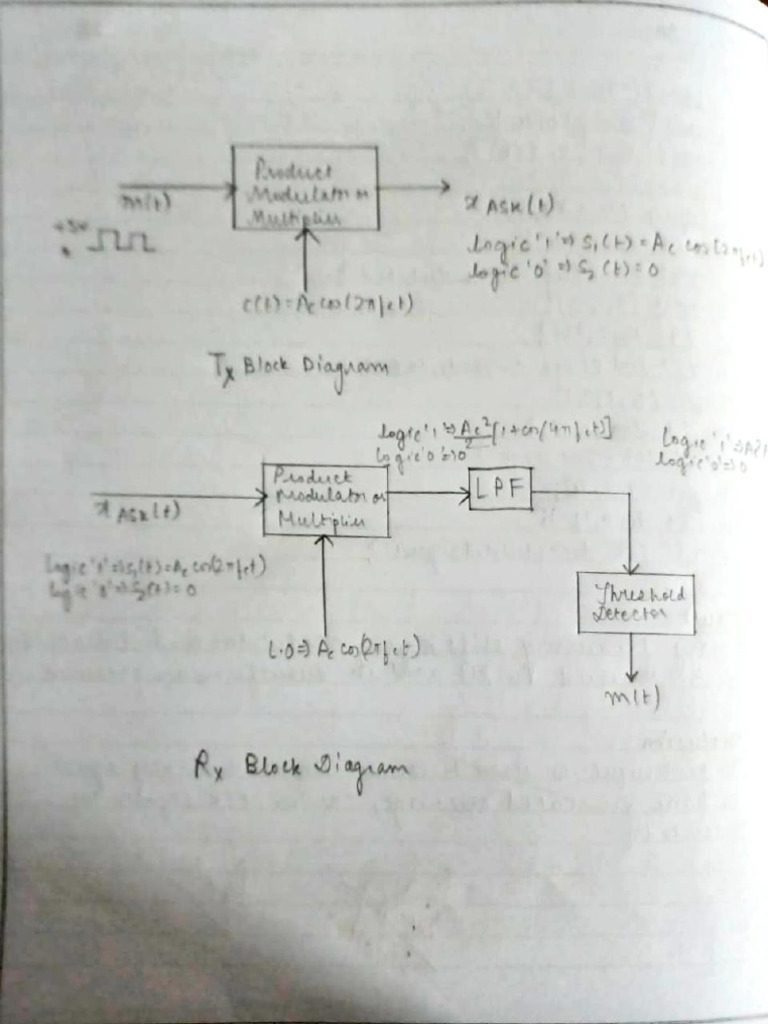 Product
Modulator or
Multiplier
m(t)
+5V
0
x ASK(t)
Logic '1' => S₁(t) = Ac cos(2πfct)
logic '0' => S₂(t) = 0
c(t) = Ac cos(2πfct)
Tx Block Diagram
Logic '1' => Ac²/2 [1+cos(4πfct)]
Logic '0' => 0
Logic '1' =>
logic '0' => 0
Product
Modulator or
Multiplier
LPF
x ASK(t)
Logic '1' => S₁(t) = Ac cos(2πfct)
logic '0' => S₂(t) = 0
Threshold
Detector
L.O => Ac cos(2πfct)
m(t)
Rx Block Diagram